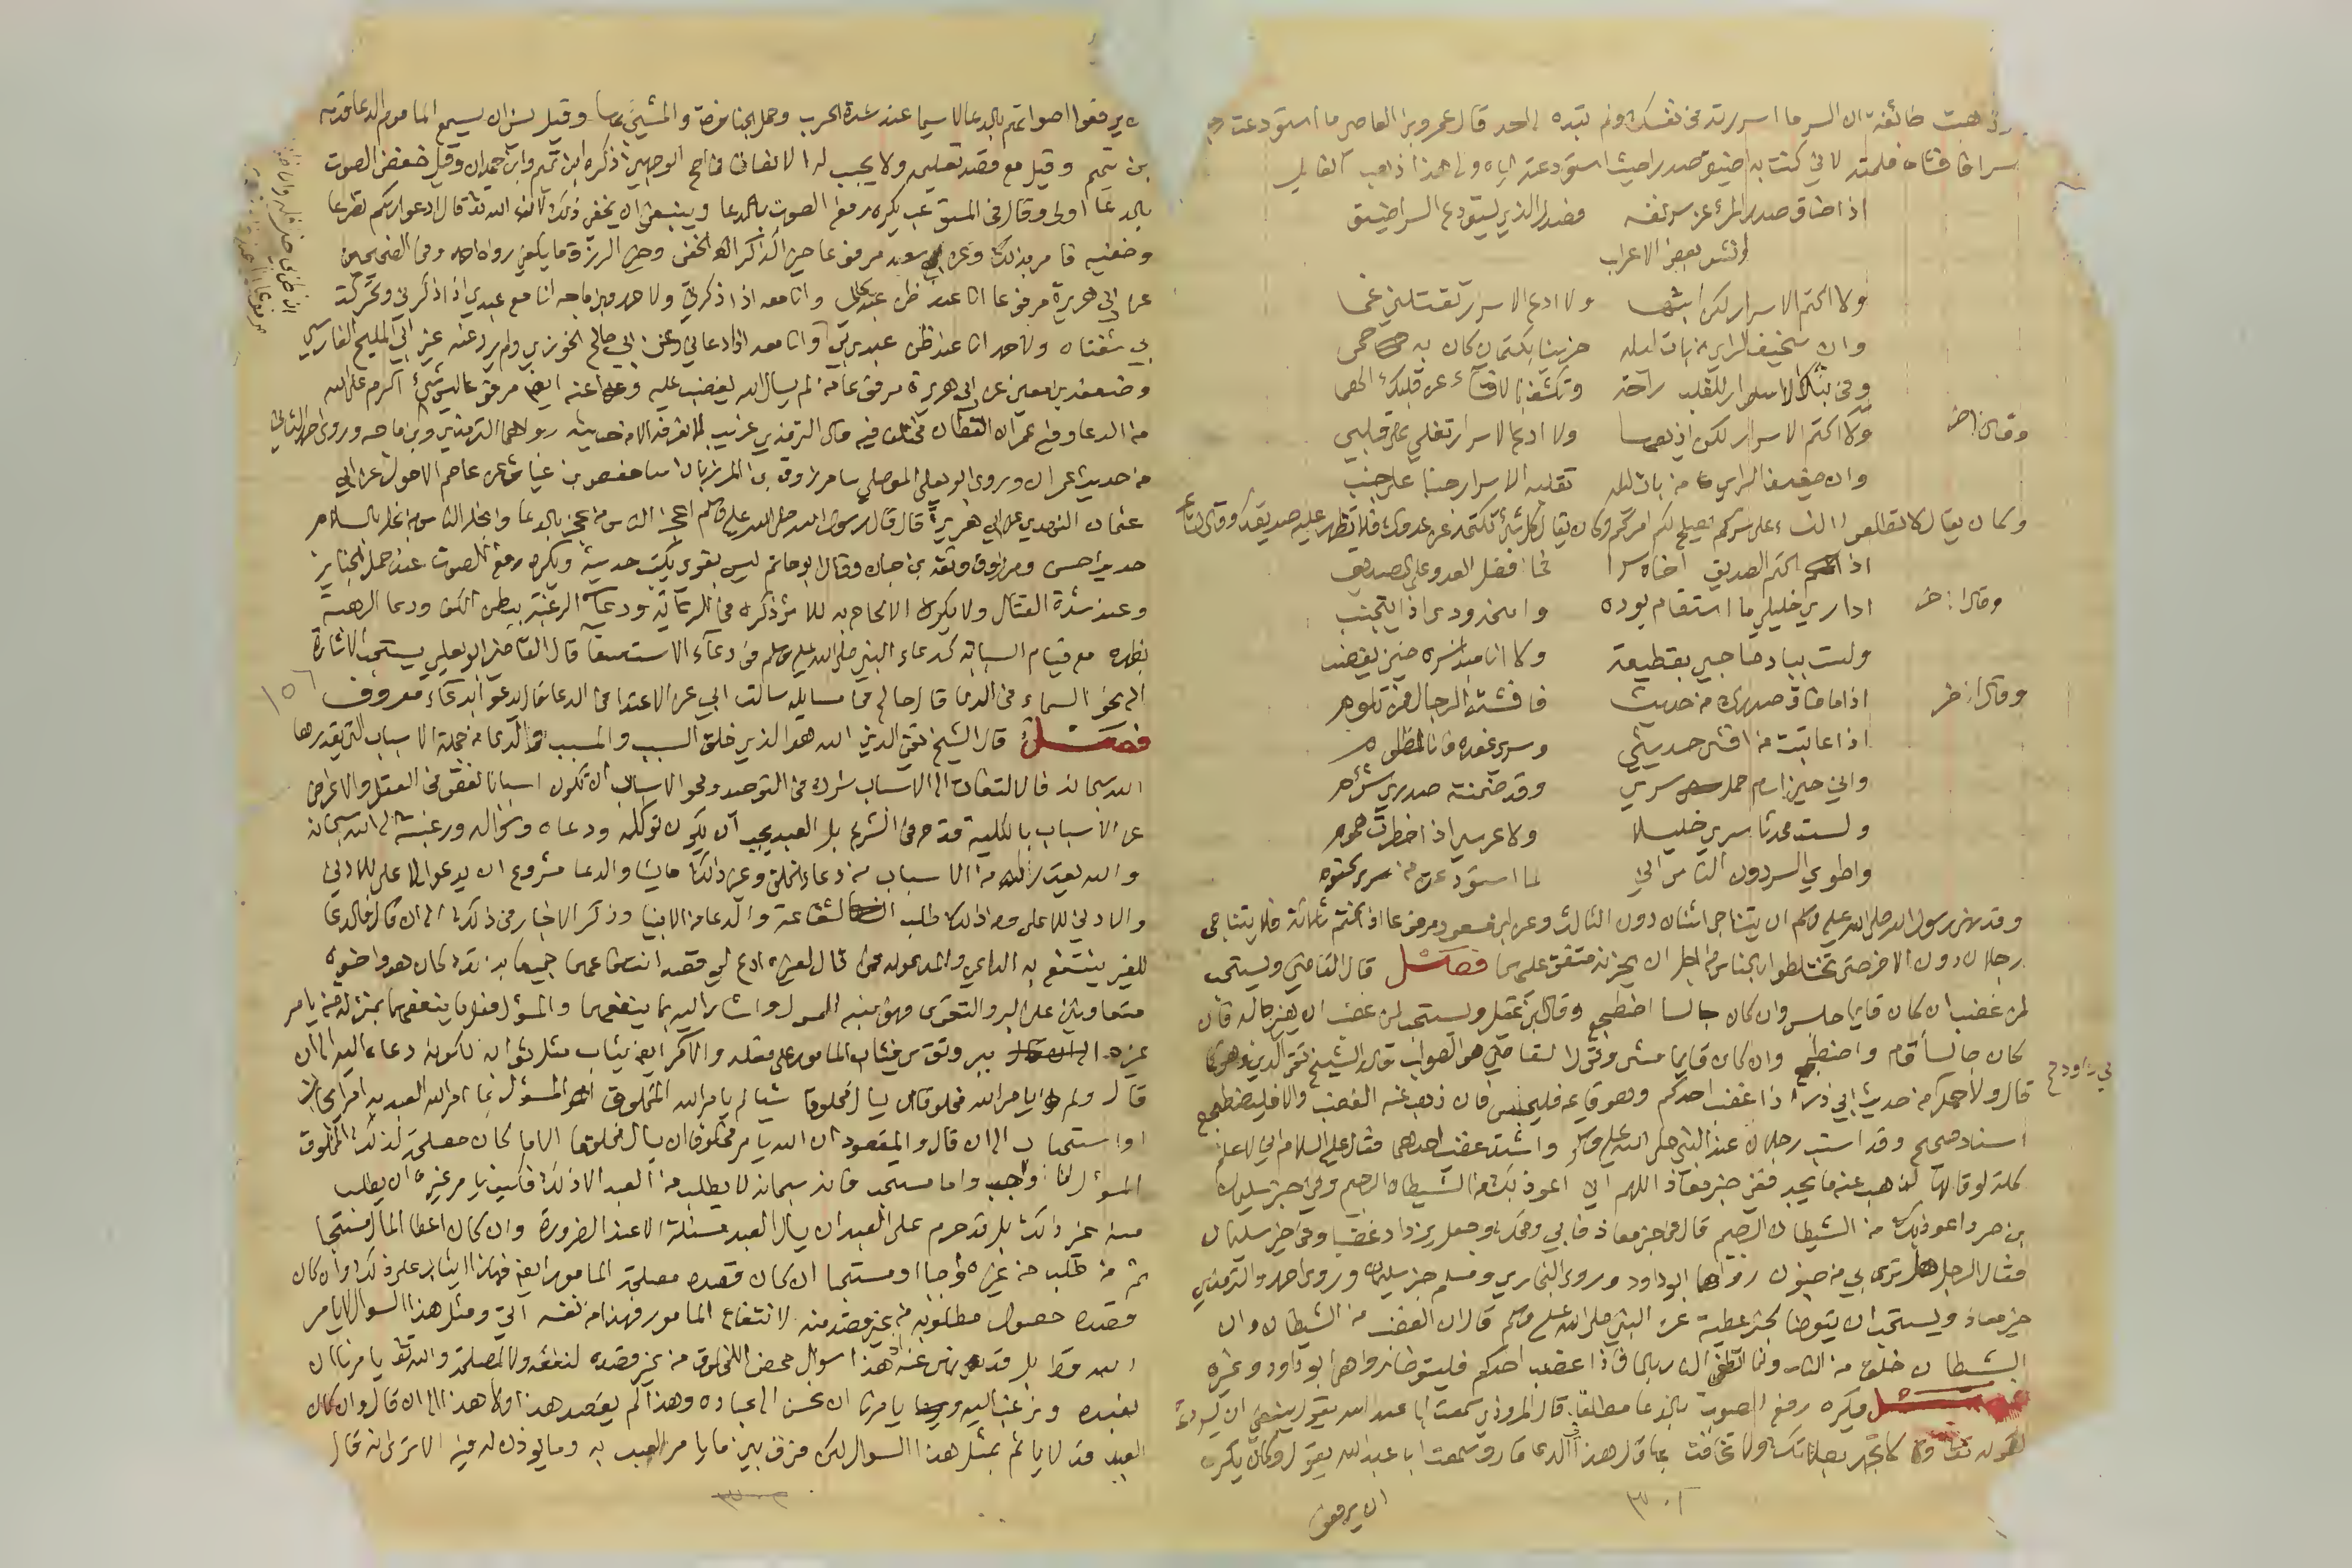 وذهبت طائفة الى ان السر ما اسررته في نفسك ولم تبده الى احد قال عمرو بن العاص ما استودعت رجلا
سرا فافشاه فلمته لاني كنت به اضيق صدرا حيث استودعته اياه والى هذا ذهب القائل
اذا ضاق صدر المرء عن سر نفسه فصدر الذي يستودع السر اضيق
وانشد بعض الاعراب
ولا اكتم الاسرار لكن ابثها ولا ادع الاسرار تقتلني غما
وان سخيف الراي من بات ليله حزينا بكتمان كان به حمى
وفي بثك الاسرار للقلب راحة وتكشف بالافشاء عن قلبك الهما
وقال اخر
ولا اكتم الاسرار لكن اذيعها ولا ادع الاسرار تغلي على قلبي
وان ضعيف الراي من بات ليله تقلبه الاسرار جنبا على جنب
وكان يقال لا تطلعوا النساء على سركم يصلح لكم امركم وكان يقال كل شيء تكتمه عن عدوك فلا تظهر عليه صديقك وقال الشاعر
اذا كتم الصديق اخاه سرا فما فضل العدو على الصديق
وقال اخر
اداري خليلي ما استقام بوده وامنحه ودي اذا يتجنب
ولست ببادٍ صاحبي بقطيعة ولا انا مبد سره حين يغضب
وقال اخر
اذا ما ضاق صدرك من حديث فافشته الرجال فمن تلوم
اذا عاتبت من افشى حديثي وسري عنده فانا الظلوم
واني حين اسام حمل سري وقد ضمنته صدري سؤوم
ولست محدثا سري خليلا ولا عرسي اذا خطرت هموم
واطوي السر دون الناس اني لما استودعت من سر كتوم
وقد نهى رسول الله صلى الله عليه وسلم ان يتناجى اثنان دون الثالث وعن ابن مسعود مرفوعا اذا كنتم ثلاثة فلا يتناجى
رجلان دون الاخر حتى تختلطوا بالناس من اجل ان يحزنه متفق عليهما فصل قال القاضي ويستحب
لمن غضب ان كان قايما جلس وان كان جالسا اضطجع وقال ابن عقيل ويستحب لمن غضب ان يغير حاله فان
كان جالسا قام واضطجع وان كان قايما مشى وقول القاضي هو الصواب قال الشيخ تقي الدين وهو كما
قال ولاحمد من حديث ابي ذر اذا غضب احدكم وهو قايم فليجلس فان ذهب عنه الغضب والا فليضطجع
اسناد صحيح وقد استب رجلان عند النبي صلى الله عليه وسلم واشتد غضب احدهما فقال عليه السلام اني لاعلم
كلمة لو قالها لذهب عنه ما يجد ففي خبر معاذ اللهم اني اعوذ بك من الشيطان الرجيم وفي خبر سليمان
بن صرد اعوذ بالله من الشيطان الرجيم قال في خبر معاذ فابى ومحك وجعل يزداد غضبا وفي خبر سليمان
فقال الرجل هل ترى بي من جنون رواهما ابو داود وروى البخاري ومسلم خبر سليمان وروى احمد والترمذي
خبر معاذ ويستحب ان يتوضا لخبر عطية عن النبي صلى الله عليه وسلم قال ان الغضب من الشيطان وان
الشيطان خلق من النار وانما تطفى النار بالماء فاذا غضب احدكم فليتوضا رواهما ابو داود وغيره
فصل يكره رفع الصوت بالدعا مطلقا قال المروذي سمعت ابا عبد الله يقول ينبغي ان يسر دعاه
لقوله تعالى ولا تجهر بصلاتك ولا تخافت بها قال هذا في الدعا قال وسمعت ابا عبد الله يقول وكان يكره
ان يرفعوا
٣٠٢
ان يرفعوا اصواتهم بالدعا لا سيما عند شدة الحرب وحمل الجنازة والمشي بها وقيل يسن ان يسمع الماموم الدعا قدمه
بن تميم وقيل مع قصد تعليمه ولا يجب له الانصات في اصح الوجهين ذكره ابن تميم وابن حمدان وقيل خفض الصوت
بالدعا اولى وقال في المستوعب يكره رفع الصوت بالدعا وينبغي ان يخفي ذلك لان الله تعالى قال ادعوا ربكم تضرعا
وخفية فامر بذلك وعن سعد مرفوعا خير الذكر الخفي وخير الرزق ما يكفي رواه احمد وفي الصحيحين
عن ابي هريرة مرفوعا انا عند ظن عبدي وانا معه اذا ذكرني ولاحمد وبن ماجه انا مع عبدي اذا ذكرني وتحركت
بي شفتاه ولاحمد انا عند ظن عبدي بي وانا معه اذا دعاني وعن ابي صالح الخوزي ولم يرو عنه غير ابي المليح الفارسي
وضعفه بن معين عن ابي هريرة مرفوعا من لم يسال الله يغضب عليه وعنه ايضا مرفوعا ليس شيء اكرم على الله
من الدعا وفيه عمران القطان مختلف فيه قال الترمذي غريب لا نعرفه الا من حديثه رواهما الترمذي وابن ماجه وروى احمد الثاني
من حديث عمران وروى ابو يعلى الموصلي ثنا مسروق بن المرزبان ثنا حفص بن غياث عن عاصم الاحول عن ابي
عثمان النهدي عن ابي هريرة قال قال رسول الله صلى الله عليه وسلم اعجز الناس من عجز بالدعا وابخل الناس من بخل بالسلام
حديث حسن ومسروق وثقه بن حبان وقال ابو حاتم ليس بقوي يكتب حديثه ويكره رفع الصوت عند حمل الجنايز
وعند شدة القتال ولا يكره الالحاح به للاثر ذكره في الرعاية ودعاء الرغبة ببطن الكف ودعا الرهبة
بظهره مع قيام السبابة كدعاء النبي صلى الله عليه وسلم في دعاء الاستسقا قال القاضي ابو يعلى يستحب الاشارة
الى نحو السماء في الدعا قال صالح في مسايله سالت ابي عن الاعتدا في الدعا قال يدعو بدعاء معروف
فصل قال الشيخ تقي الدين الله هو الذي خلق السبب والمسبب والدعا من جملة الاسباب التي يقدرها
الله سبحانه فالالتفات الى الاسباب شرك في التوحيد ومحو الاسباب ان تكون اسبابا نقص في العقل والاعراض
عن الاسباب بالكلية قدح في الشرع بل العبد يجب ان يكون توكله ودعاه وسؤاله ورغبته الى الله سبحانه
والله يقدر له من الاسباب من دعاء الخلق وغير ذلك ما يشا والدعا مشروع ان يدعو الاعلى للادنى
والادنى للاعلى ومن ذلك طلب الشفاعة والدعا من الانبيا وذكر الاخبار في ذلك الى ان قال فالدعا
للغير ينتفع به الداعي والمدعو له فمن قال لغيره ادع لي قصد انتفاعهما جميعا بذلك كان هو واخوه
متعاونين على البر والتقوى فهو نبه المسول واشار اليه بما ينفعهما والمسؤل فعل ما ينفعهما بمنزلة من يامر
غيره ببر وتقوى فيثاب المامور على فعله والامر ايضا يثاب مثل ثوابه لكونه دعاه اليه الى ان
قال ولم يامر الله مخلوقا ان يسال مخلوقا شيا لم يامر الله المخلوق المسؤل بما امر الله العبد به امر ايجاب
او استحباب الى ان قال والمقصود ان الله يامر مخلوقا ان يسال مخلوقا الا ما كان مصلحة لذلك المخلوق
المسؤل اما واجب واما مستحب فانه سبحانه لا يطلب من العبد الا ذلك فكيف يامر غيره ان يطلب
منه غير ذلك بل قد حرم على العبد ان يسال العبد مسئلة الا عند الضرورة وان كان اعطا المال مستحبا
ثم من طلب من غيره واجبا او مستحبا ان كان قصده مصلحة المامور ايضا فهذا يثاب على ذلك وان كان
قصده حصول مطلوبه من غير قصد منه لانتفاع المامور فهذا من نفسه اتي ومثل هذا السوال لا يامر
الله به قط بل قد نهى عنه اذ هذا سوال محض للمخلوق من غير قصده لنفعه ولا لمصلحته والله تعالى يامرنا ان
نعبده ونرغب اليه ويامرنا ان نحسن الى عباده وهذا لم يقصد هذا ولا هذا الى ان قال وان كان
العبد قد لا ياثم بمثل هذا السوال لكن فرق بين ما يامر العبد به وما يوذن له فيه الا ترى انه قال
١٥٦